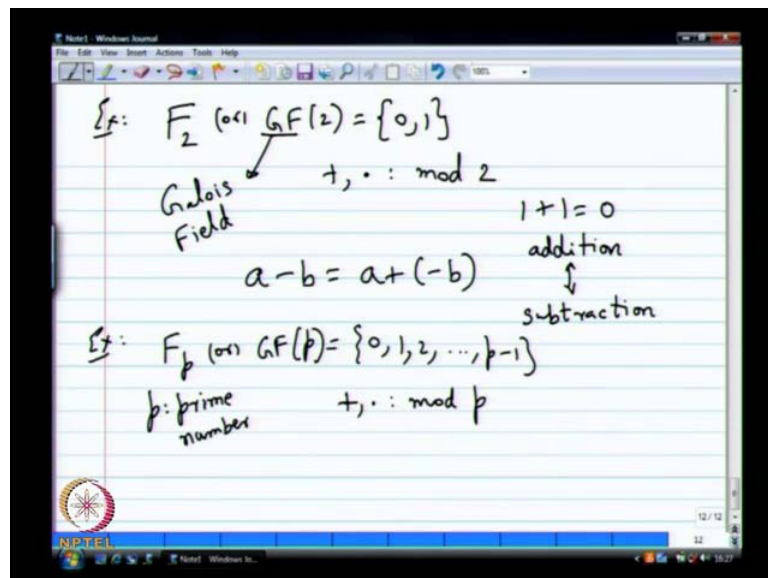 Note1 - Windows Journal
File Edit View Insert Actions Tools Help
100%
Ex: F2 (or) GF(2) = {0,1}
+, · : mod 2
Galois
Field
1 + 1 = 0
addition
↕
subtraction
a - b = a + (-b)
Ex: Fp (or) GF(p) = {0, 1, 2, ..., p-1}
p: prime
number
+, · : mod p
12 / 12
12
NPTEL
Note1 - Windows Jo...
16:27